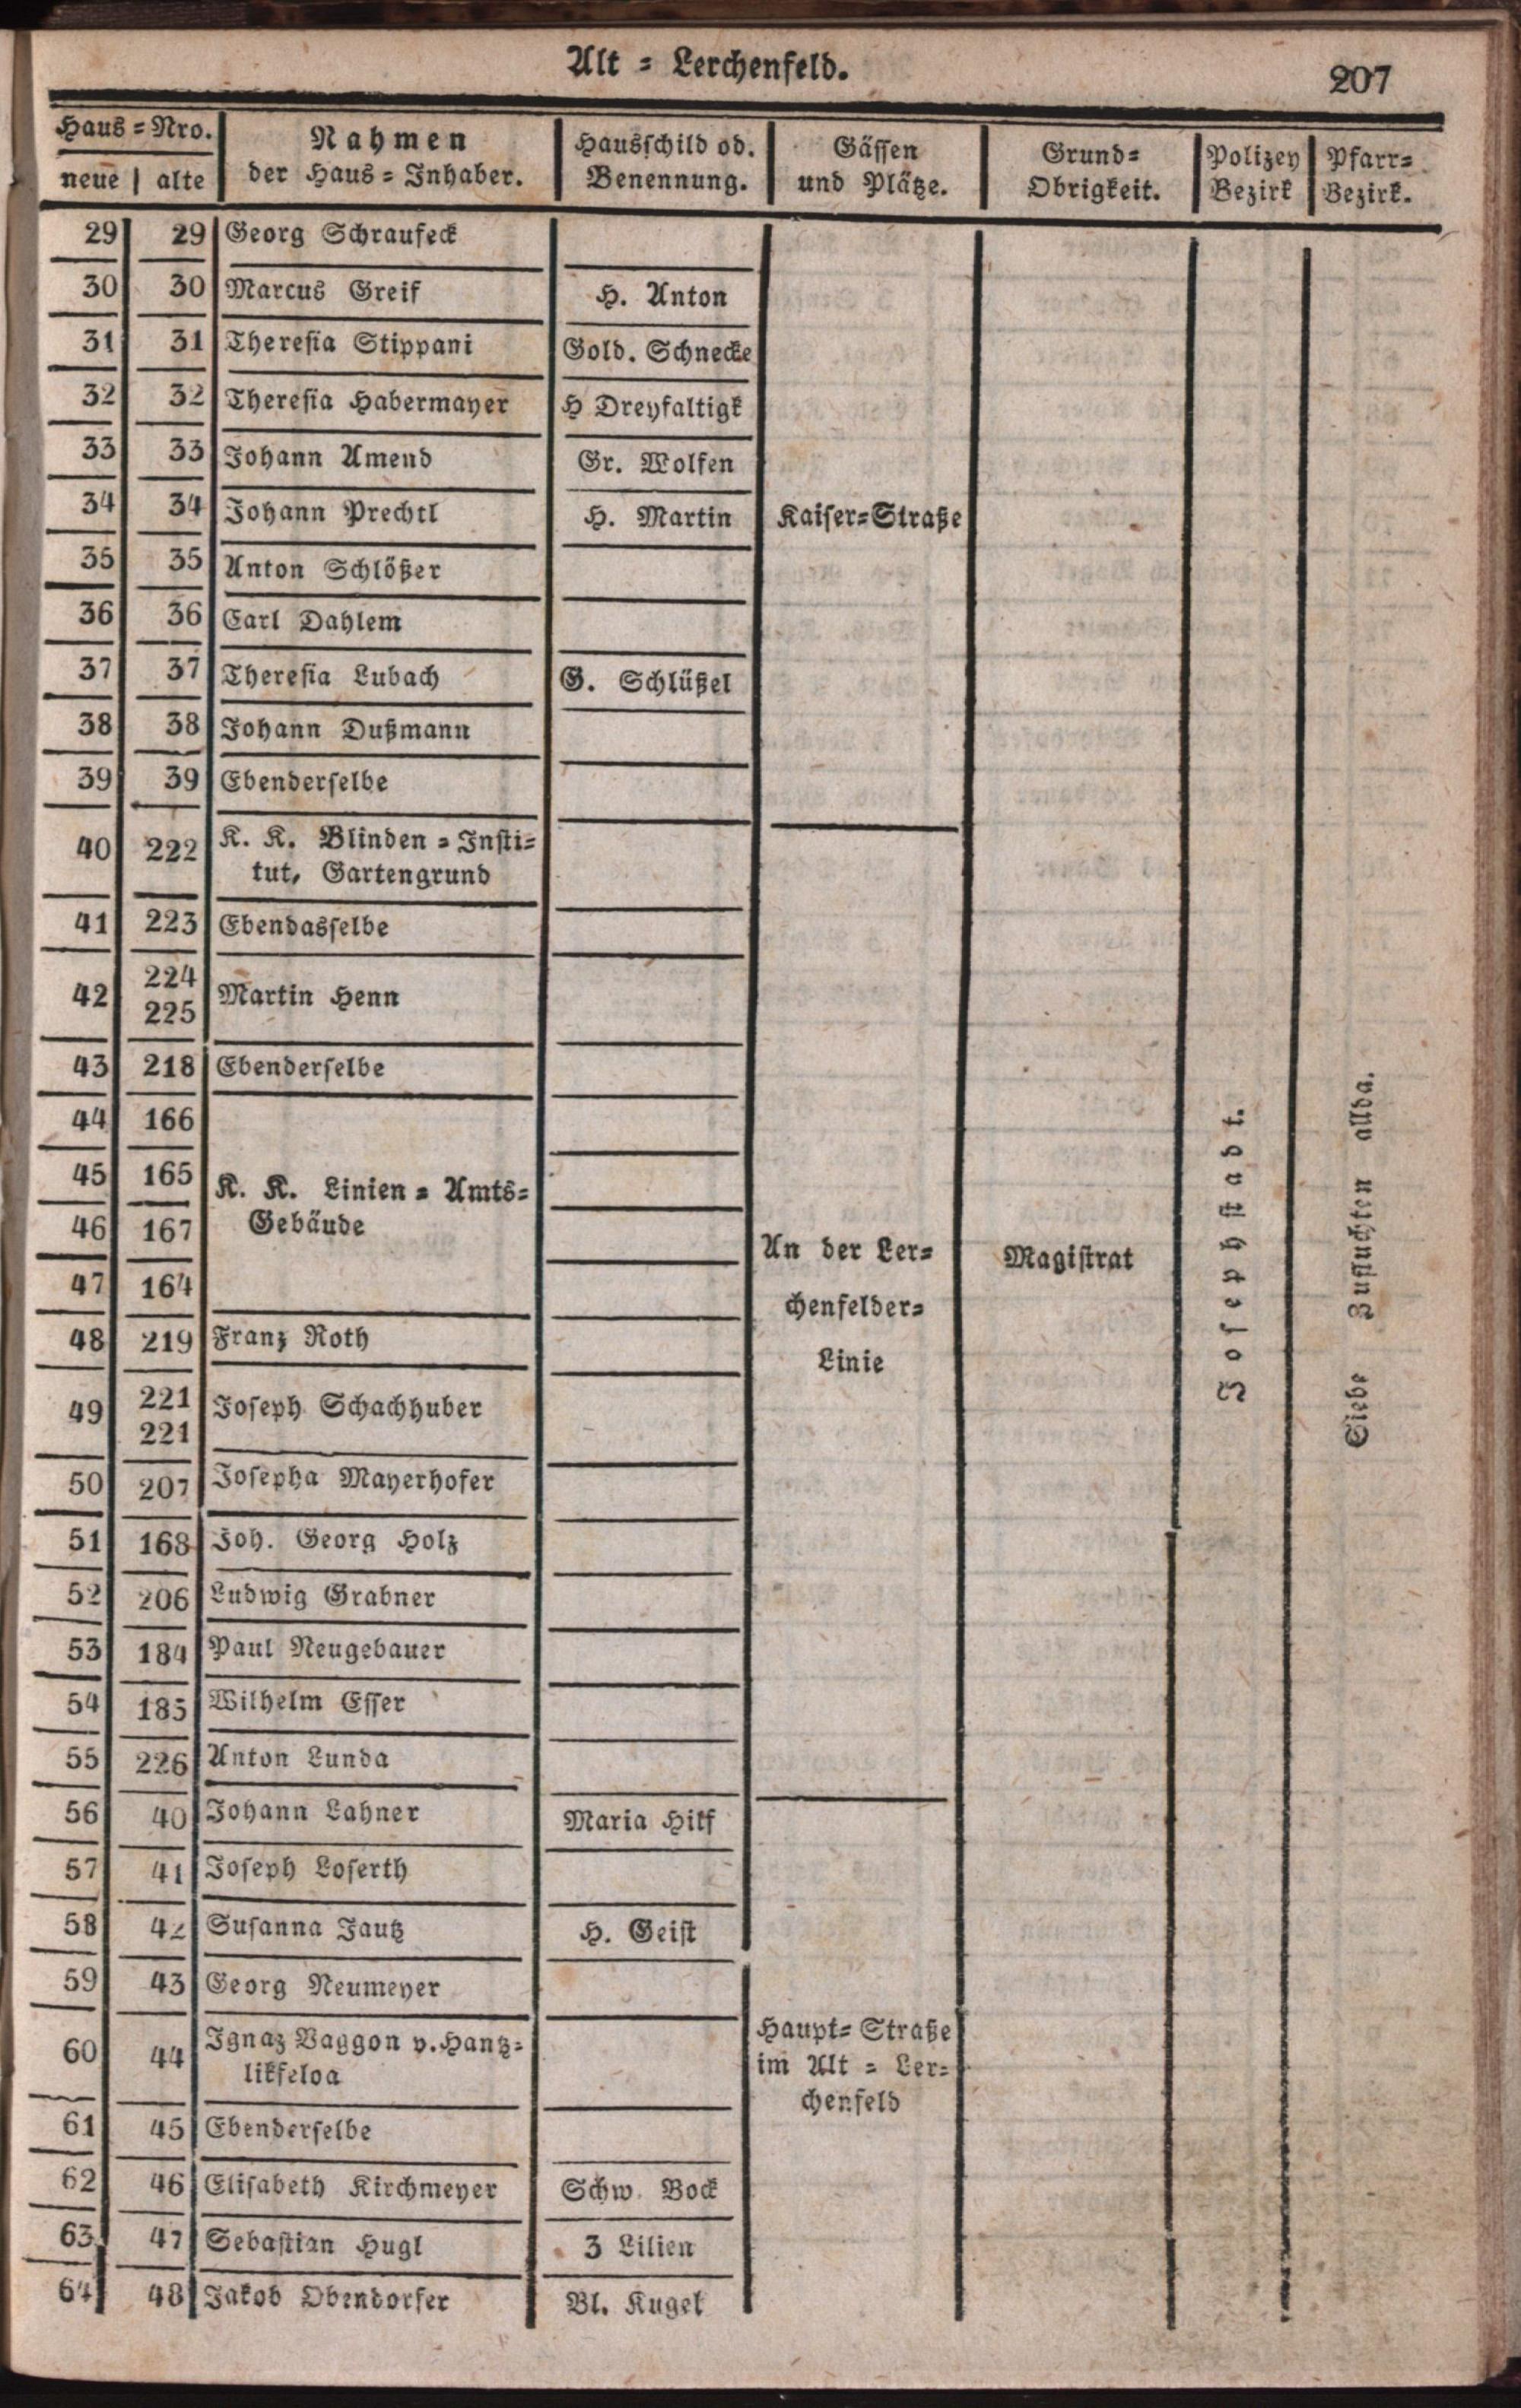 Alt = Lerchenfeld.
207
Haus = Nro.
neue | alte
Nahmen
der Haus = Inhaber.
Hausschild od.
Benennung.
Gässen
und Plätze.
Grund=
Obrigkeit.
Polizey
Bezirk
Pfarr=
Bezirk.
29 29 Georg Schraufeck
30 30 Marcus Greif H. Anton
31 31 Theresia Stippani Gold. Schnecke
32 32 Theresia Habermayer H Dreyfaltigk
33 33 Johann Amend Gr. Wolfen
34 34 Johann Prechtl H. Martin Kaiser=Straße
35 35 Anton Schlößer
36 36 Carl Dahlem
37 37 Theresia Lubach G. Schlüßel
38 38 Johann Dußmann
39 39 Ebenderselbe
40 222 K. K. Blinden = Insti=
tut, Gartengrund
41 223 Ebendasselbe
42 224
225 Martin Henn
43 218 Ebenderselbe
44 166
45 165 K. K. Linien = Amts=
Gebäude
46 167
47 164
An der Ler=
chenfelder=
Linie
Magistrat
Josephstadt.
Siebe Zufluchten allda.
48 219 Franz Roth
49 221
221 Joseph Schachhuber
50 207 Josepha Mayerhofer
51 168 Joh. Georg Holz
52 206 Ludwig Grabner
53 184 Paul Neugebauer
54 185 Wilhelm Esser
55 226 Anton Lunda
56 40 Johann Lahner Maria Hilf
57 41 Joseph Loserth
58 42 Susanna Jautz H. Geist
59 43 Georg Neumeyer
60 44 Ignaz Vaggon v. Hantz=
likfeloa
Haupt= Straße
im Alt = Ler=
chenfeld
61 45 Ebenderselbe
62 46 Elisabeth Kirchmeyer Schw. Bock
63 47 Sebastian Hugl 3 Lilien
64 48 Jakob Obendorfer Bl. Kugel